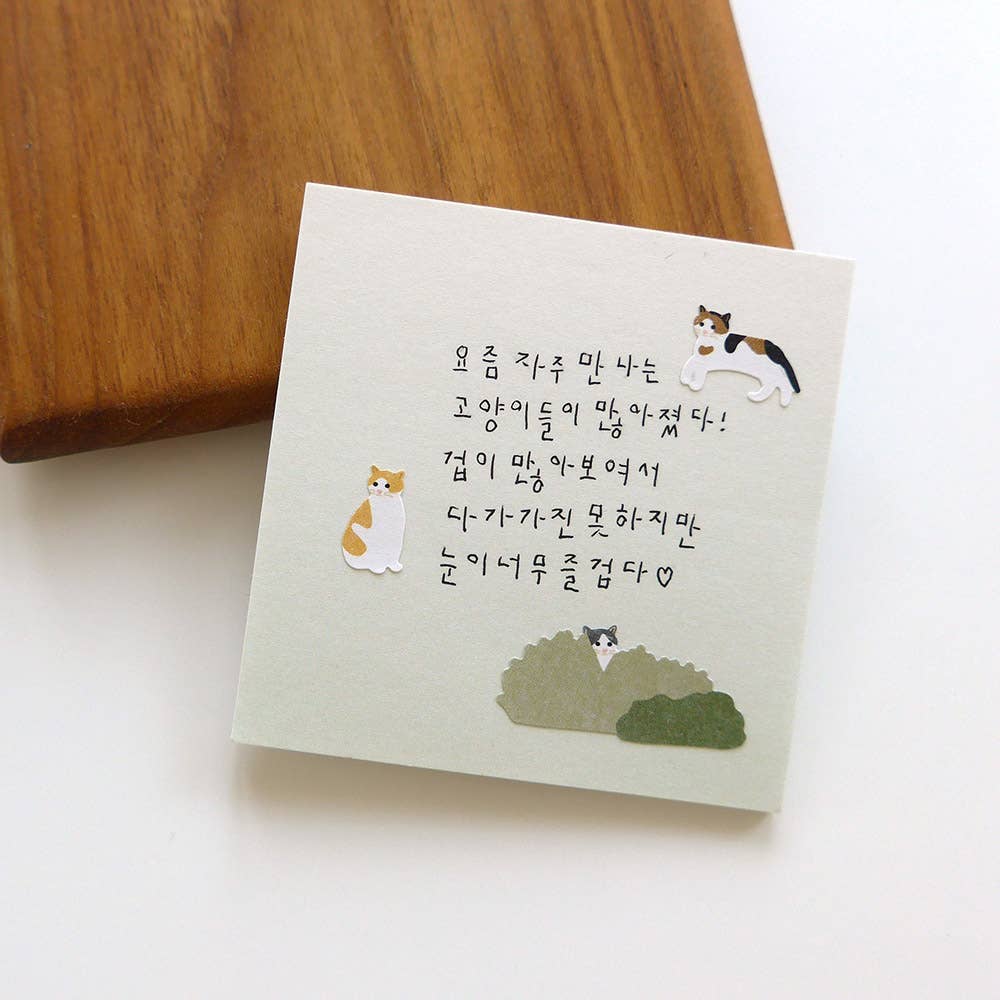 요즘 자주 만나는
고양이들이 많아졌다!
겁이 많아보여서
다가가진 못하지만
눈이 너무 즐겁다♡